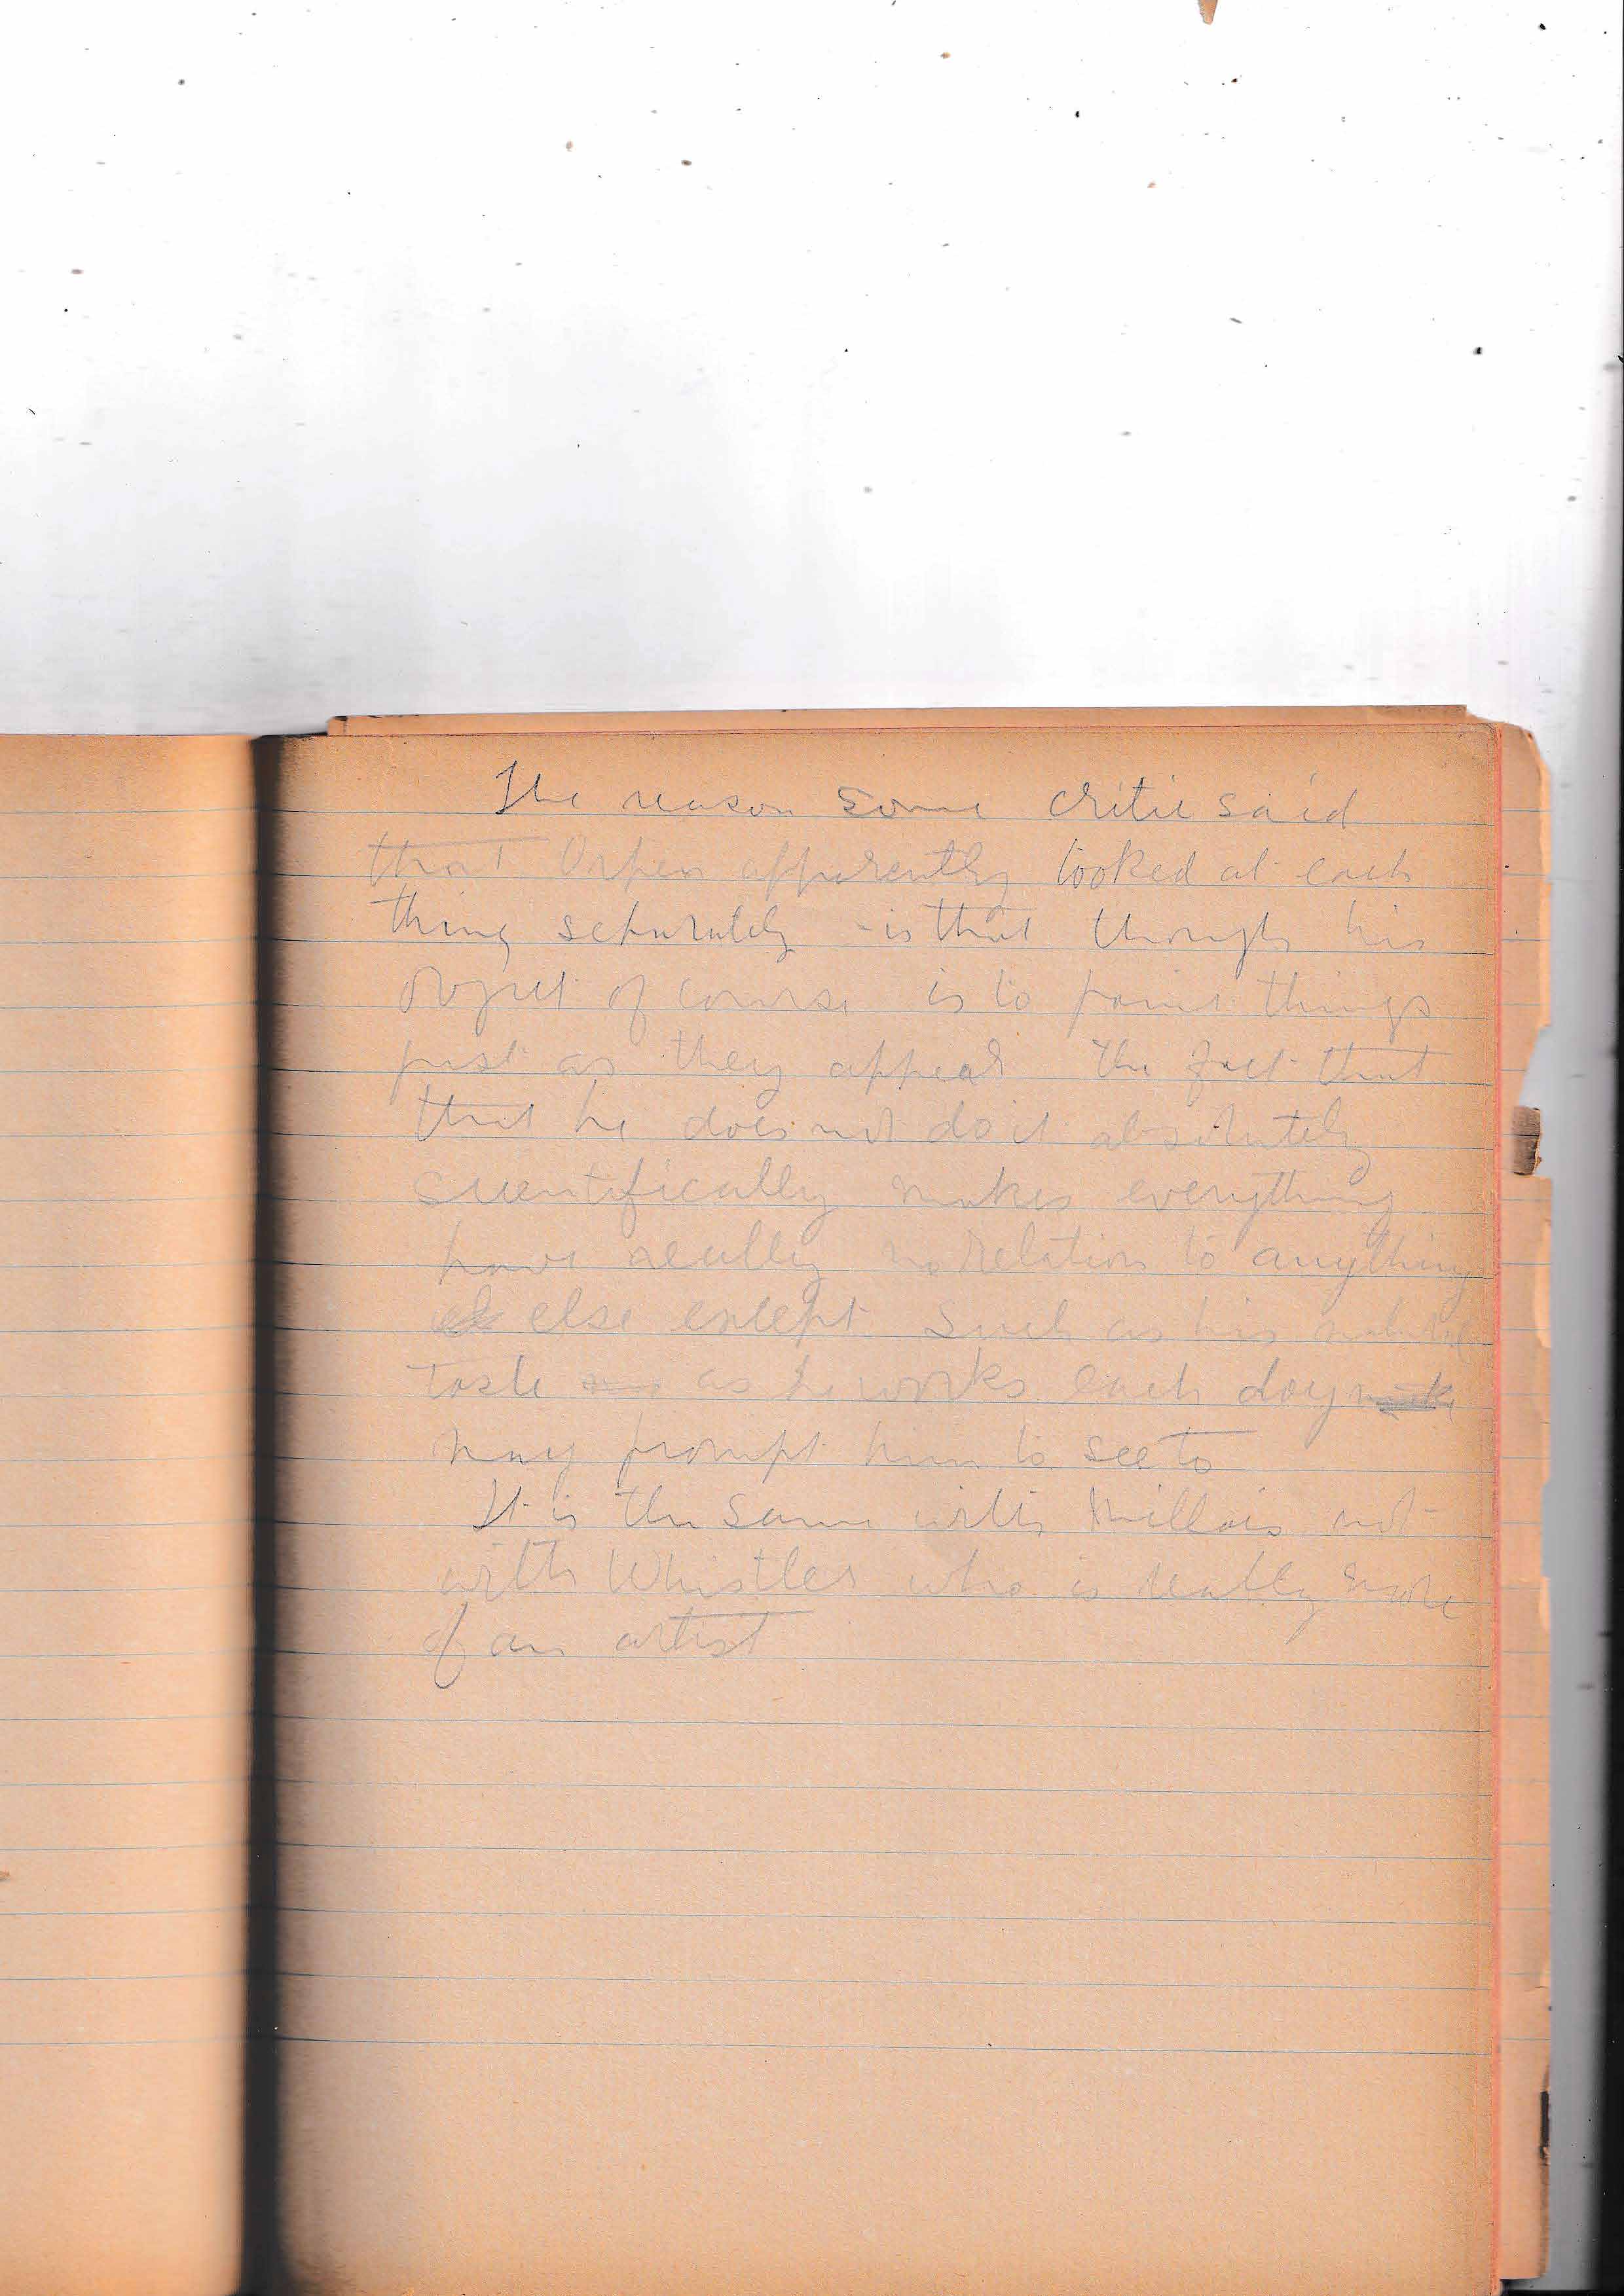 The reason some critic said
that Orpen apparently looked at each
thing separately - is that though his
object of course is to paint things
just as they appear the fact that
that he does not do it absolutely
scientifically makes everything
have really no relation to anything
else except such as his
taste as he works each day
may prompt him to see to
It is the same with Millais not
with Whistler who is really more
of an artist